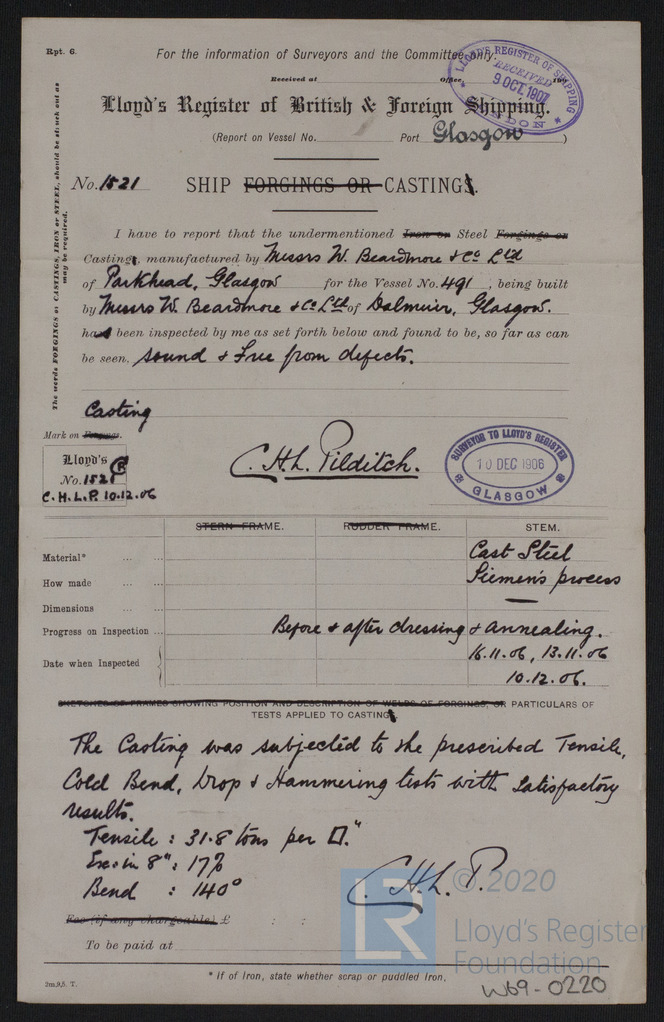 Rpt. 6.
For the information of Surveyors and the Committee only.
Received at Office, 190
LLOYD'S REGISTER OF SHIPPING
RECEIVED
9 OCT. 1907
LONDON
Lloyd's Register of British & Foreign Shipping.
(Report on Vessel No. Port Glasgow )
No. 1521 SHIP FORGINGS OR CASTING.
The words FORGINGS or CASTINGS, IRON or STEEL, should be struck out as
may be required.
I have to report that the undermentioned Iron or Steel Forgings or
Casting, manufactured by Messrs W. Beardmore & Co Ltd
of Parkhead, Glasgow for the Vessel No. 491, being built
by Messrs W. Beardmore & Co Ltd of Dalmuir, Glasgow.
has been inspected by me as set forth below and found to be, so far as can
be seen, sound & free from defects.
Casting
Mark on Forgings.
Lloyd's
No. 1521
C.H.L.P. 10.12.06
C.H.L. Pilditch.
SURVEYOR TO LLOYD'S REGISTER
10 DEC 1906
GLASGOW
STERN FRAME. RUDDER FRAME. STEM.
Material* ... ... Cast Steel
How made ... ... Siemen's process
Dimensions ... ... —
Progress on Inspection ... Before & after dressing & annealing.
Date when Inspected 16.11.06, 13.11.06
10.12.06.
SKETCHES OF FRAMES SHOWING POSITION AND DESCRIPTION OF WELDS OF FORGINGS, OR PARTICULARS OF
TESTS APPLIED TO CASTING
The Casting was subjected to the prescribed Tensile,
Cold Bend, Drop & Hammering tests with satisfactory
results.
Tensile : 31.8 tons per □."
Ex: in 8" : 17%
Bend : 140°
C.H.L.P.
Fee (if any chargeable) £ : :
To be paid at
* If of Iron, state whether scrap or puddled Iron.
2m.9,5. T.
W69-0220
LR
© 2020
Lloyd's Register
Foundation